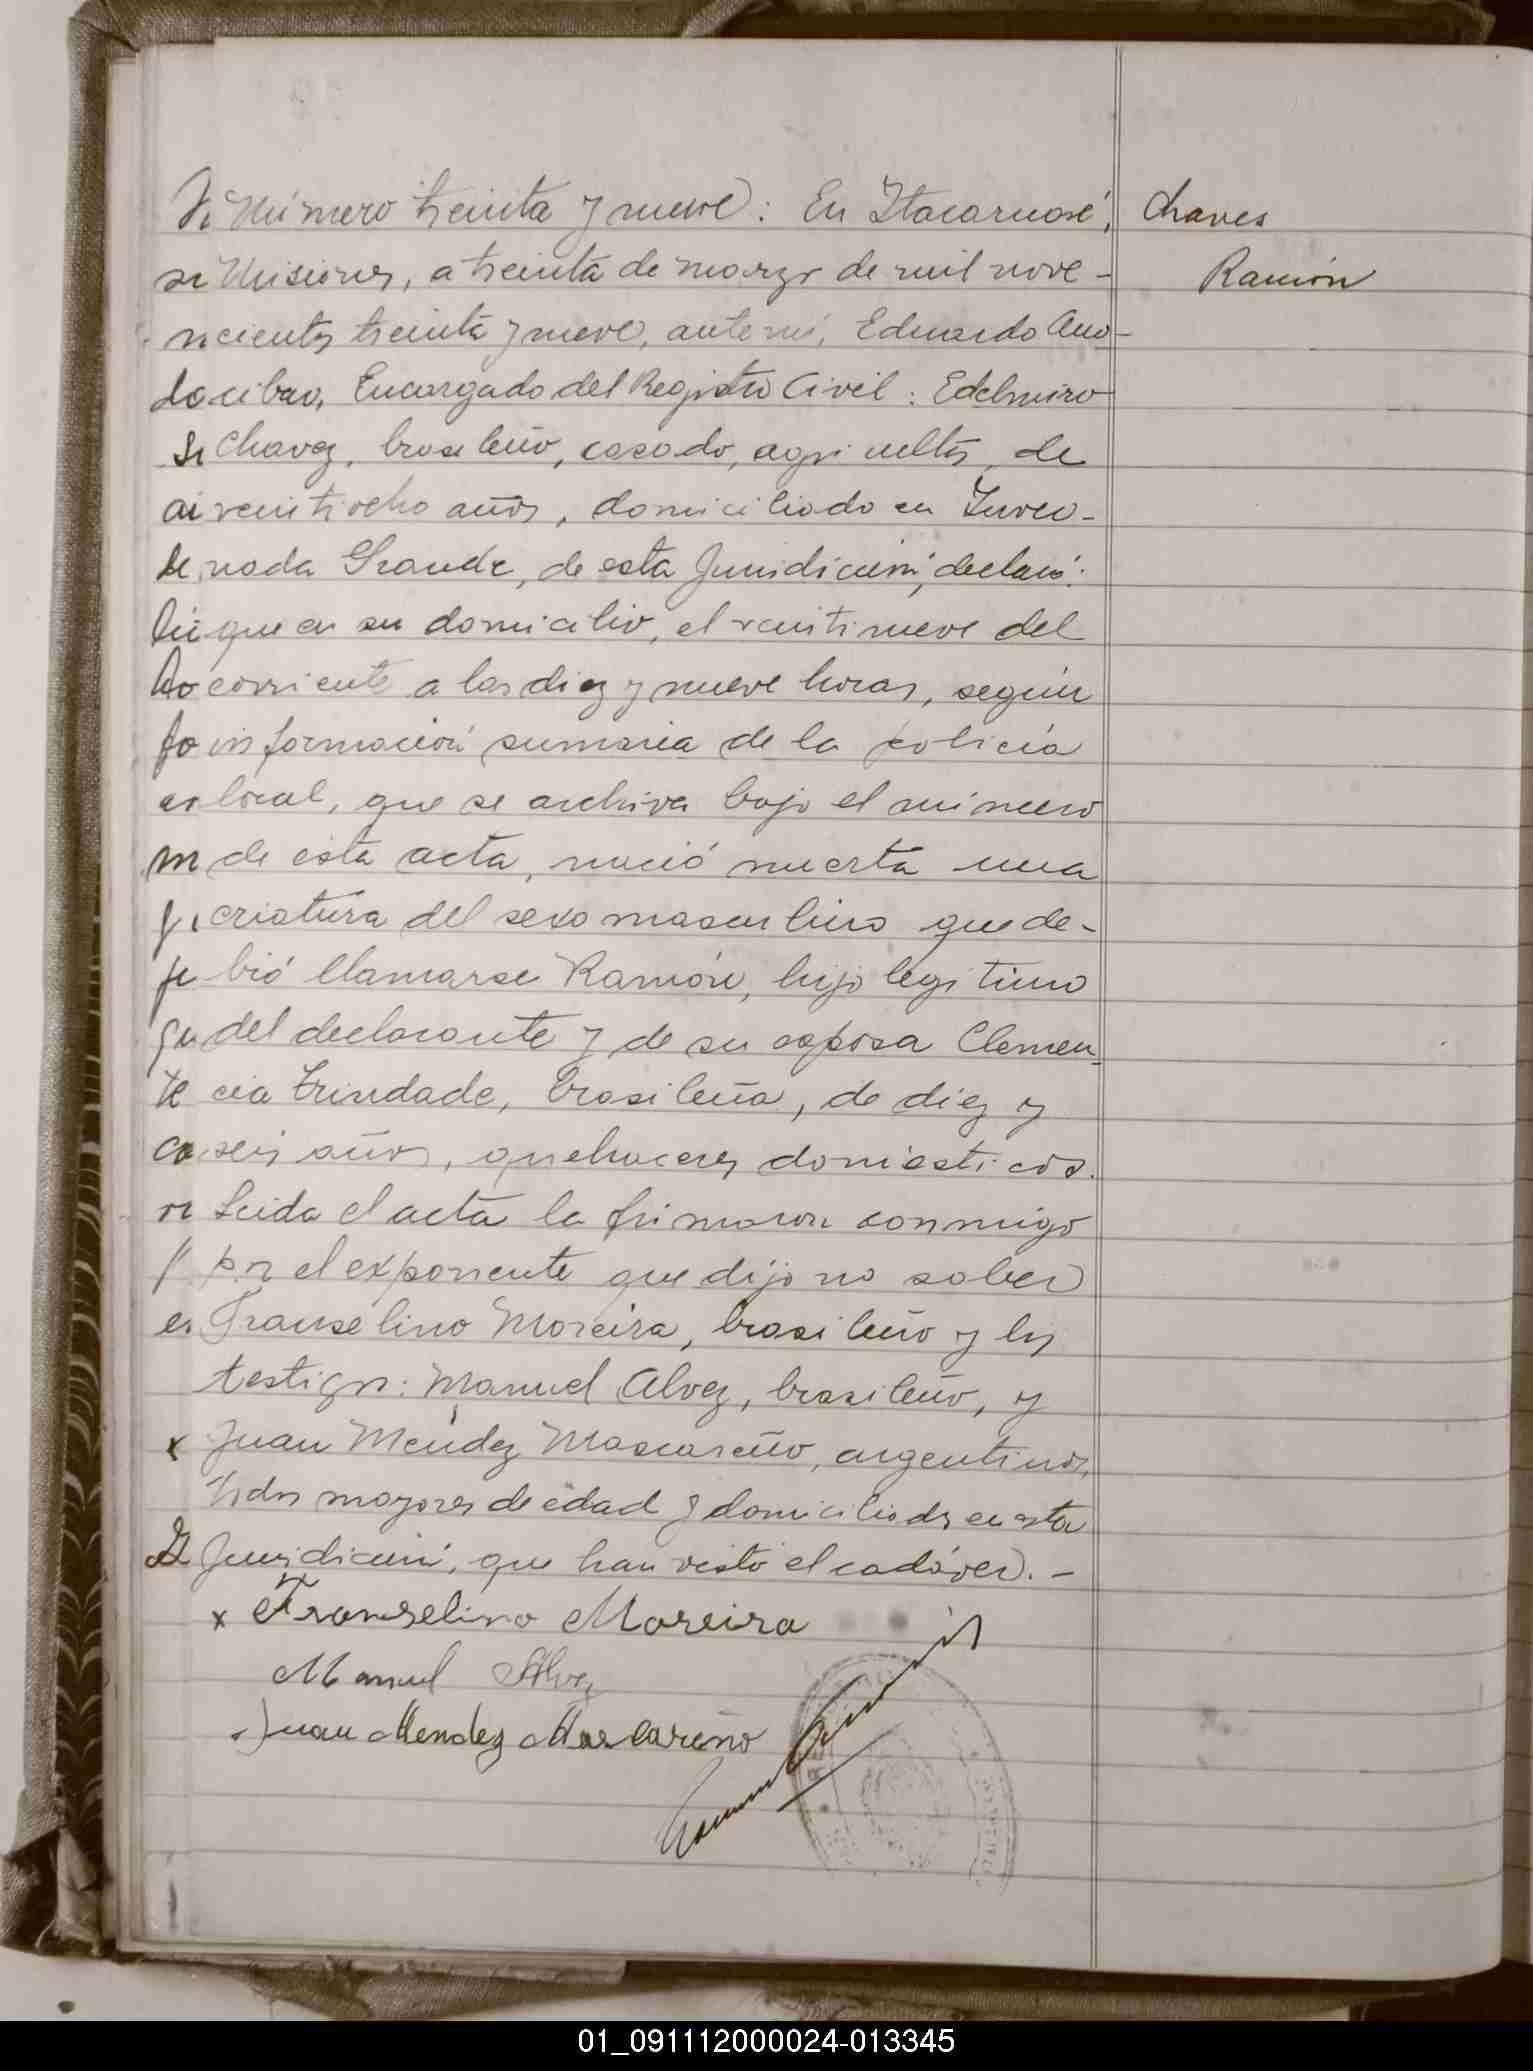 Número treinta y nueve: En Itacaruaré,
Misiones, a treinta de marzo de mil nove-
cientos treinta y nueve, ante mí, Eduardo
Encargado del Registro Civil: Edelmiro
Chavez, brasileño, casado, agricultor, de
veintiocho años, domiciliado en
nada Grande, de esta Jurisdicción, declaró:
que en su domicilio, el veintinueve del
corriente a las diez y nueve horas, según
información sumaria de la policía
local, que se archiva bajo el número
de esta acta, nació muerta una
criatura del sexo masculino que de-
bió llamarse Ramón, hijo legítimo
del declarante y de su esposa Clemen-
cia Trindade, brasileña, de diez y
seis años, quehaceres domésticos.
Leida el acta la firmaron conmigo
por el exponente que dijo no saber
Franselino Moreira, brasileño y los
testigos: Manuel Alvez, brasileño, y
Juan Méndez Mascareño, argentino,
todos mayores de edad y domiciliados en esta
Jurisdicción, que han visto el cadáver. -
x Franselino Moreira
Manuel Alvez
Juan Mendez Mascareño
Chaves
Ramón
01_091112000024-013345